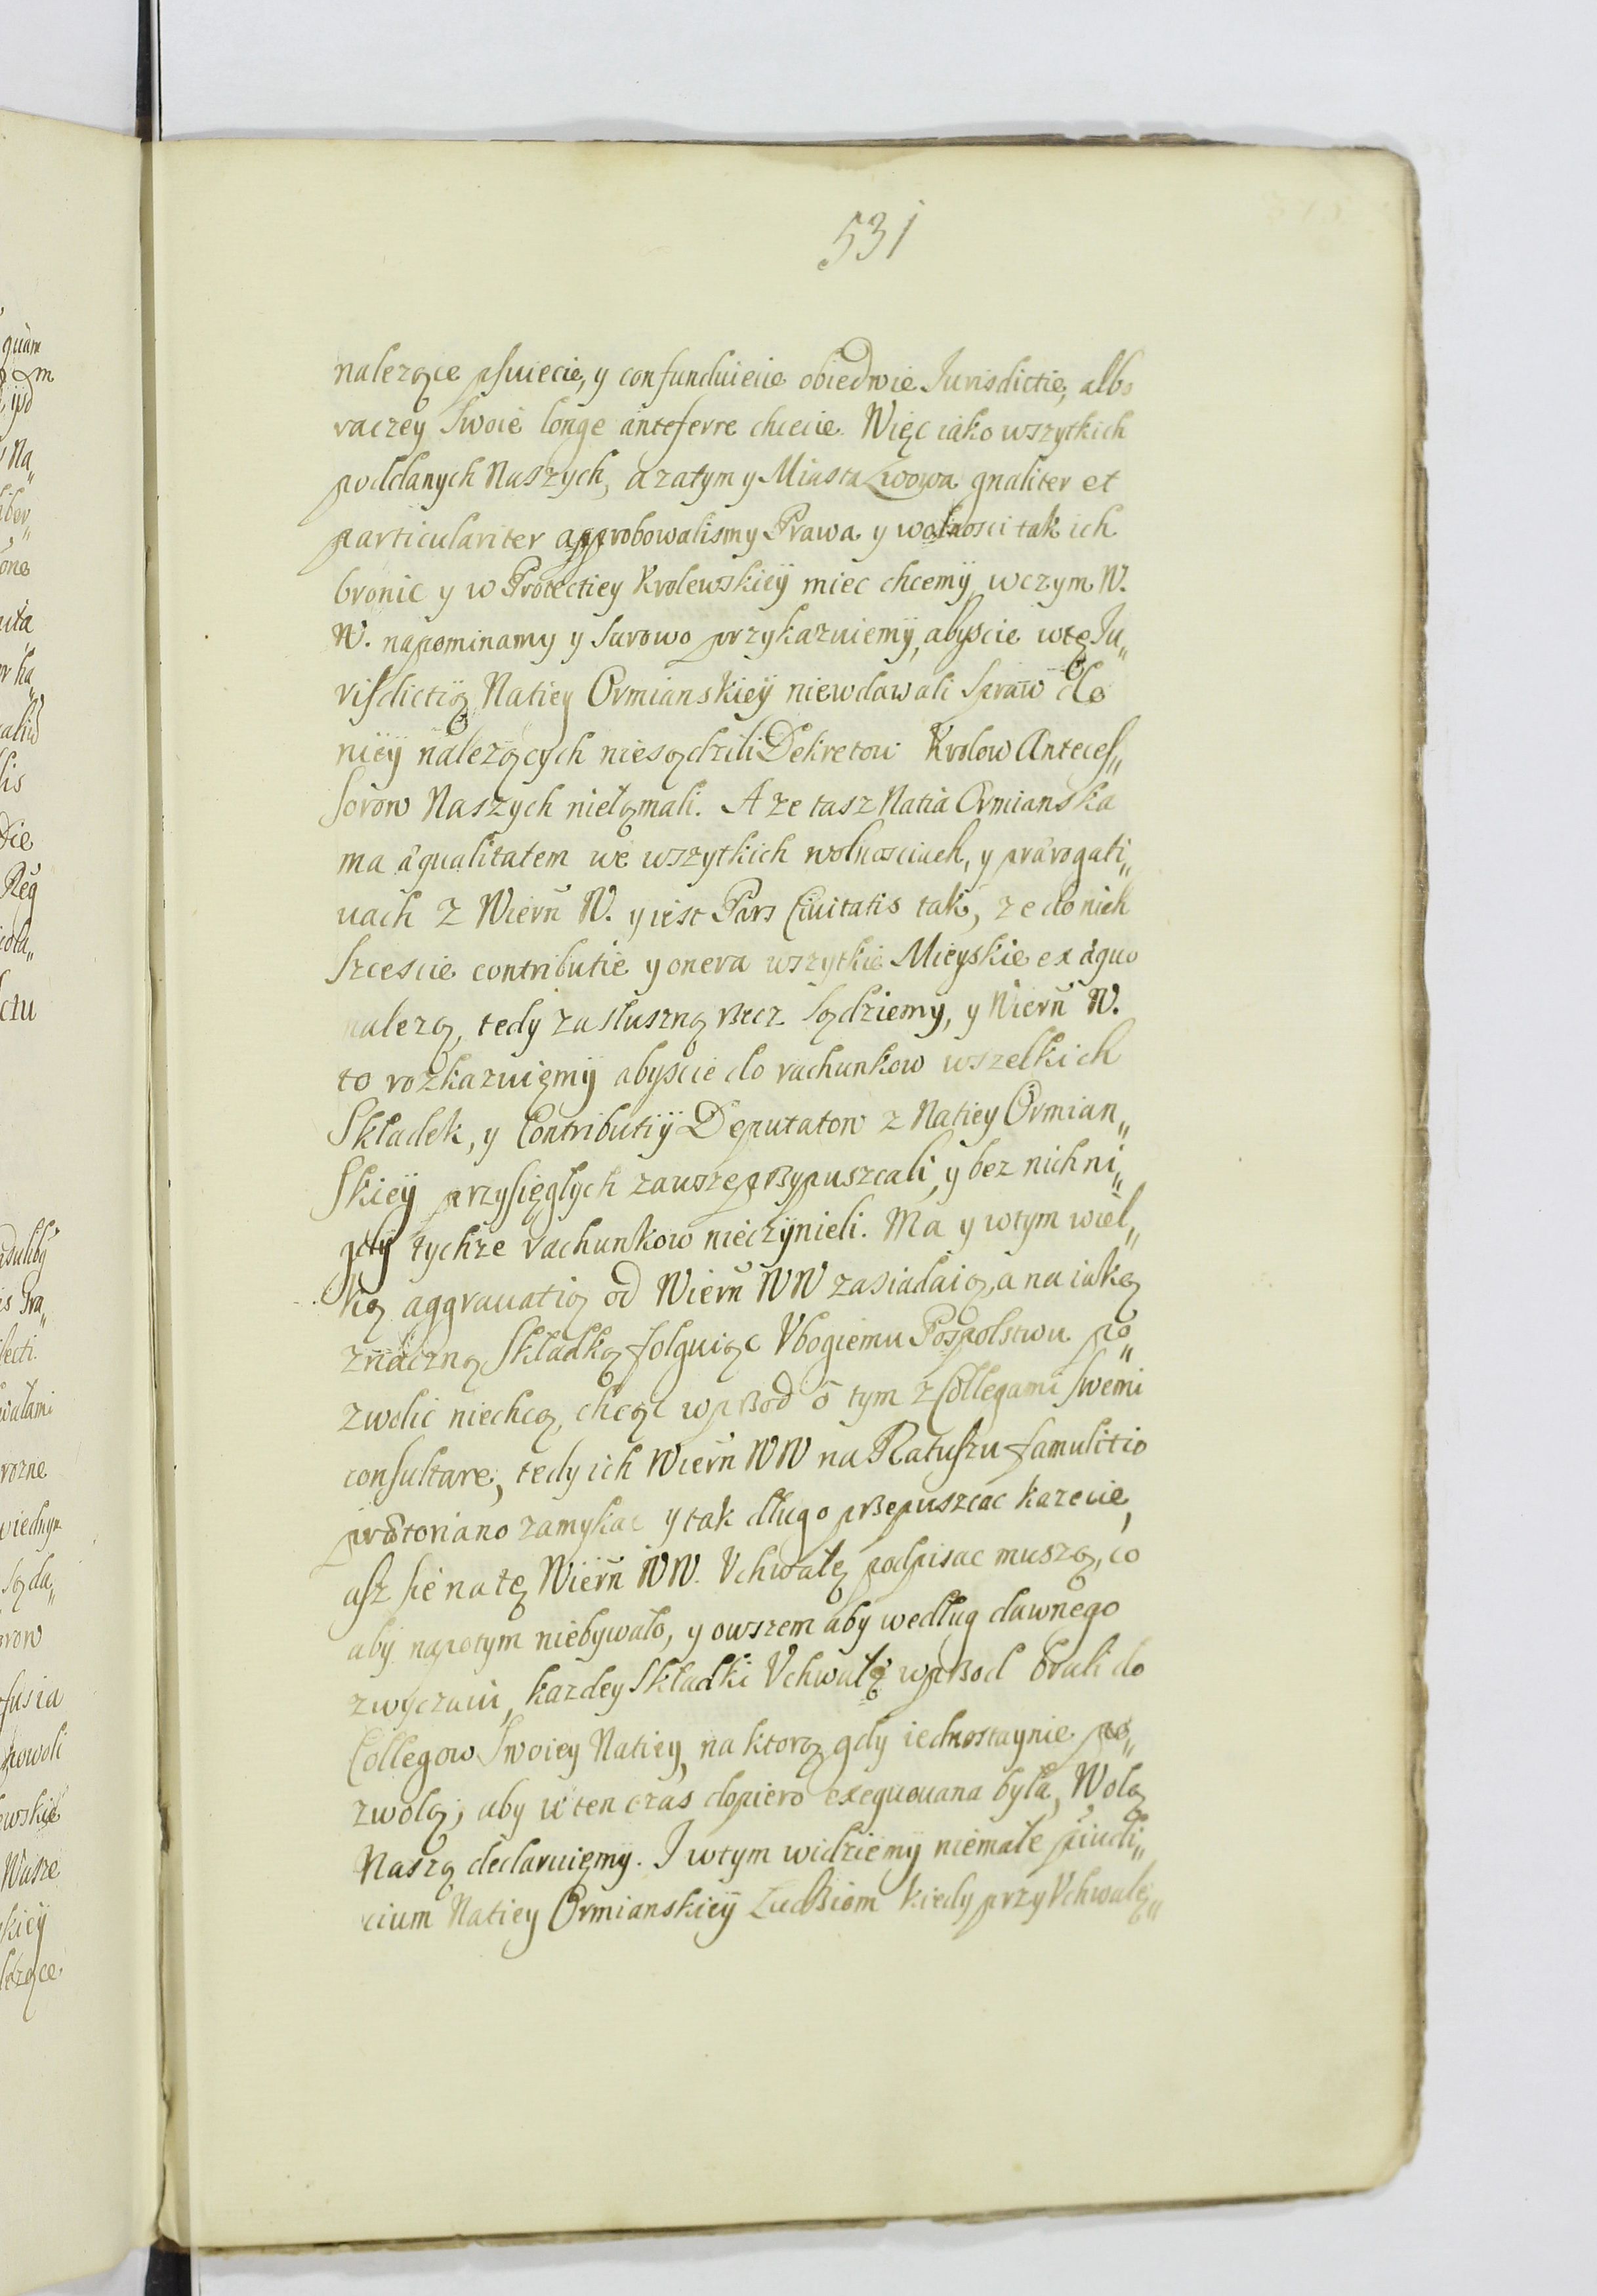 531
należące psuiecie, y confunduiecie obiedwie Jurisdictie, albo
raczey swoie longe anteferre chcecie. Więc iako wszytkich
poddanych Naszych, a zatym y Miasta Lwowa gnaliter et
particulariter approbowalismy Prawa y wolnosci tak ich
bronic y w Protectiey Krolewskieÿ miec chcemÿ, wczym W.
W. napominamy y surowo przykazuiemÿ, abyscie wtę Ju„
risdictią Natiey Ormianskieÿ niewdawali spraw do
nieÿ należących niesądzili Dekretow Krolow Anteces„
sorow Naszych niełąmali. A że tasz Natia Ormianska
ma æqualitatem we wszytkich wolnosciach, y prærogati„
uach z Wiern̄ W. y iest Pars Ciuitatis tak, że do nich
szescie contributie y onera wszytkie Mieyskie ex æquo
należą, tedÿ za słuszną rzecz sądziemÿ, y Wiern̄ W.
to rozkazuięmÿ abyscie do rachunkow wszelkich
Składek, y Contributiÿ Deputatow z Natiey Ormian„
skieÿ przysięgłych zawsze przypuszcali, y bez nich ni„
gdÿ tychże rachunkow nieczÿnieli. Ma y wtym wiel„
ką aggrauatią od Wiern̄ WW zasiadaią, a na iaką
znaczną Składkę folguiąc Vbogiemu Pospolstwu po„
zwolic niechcą, chcąc wprzod o tym z Collegami swemi
consultare, tedy ich Wiern̄ WW na Ratuszu famulitio
prætoriano zamykac y tak długo przepuszcac każecie,
asz się na tę Wiern̄ WW. Vchwałę podpisac muszą, co
aby napotym niebywało, y owszem aby według dawnego
zwyczaiu, każdey Składki Vchwałę wprzod brali do
Collegow Swoiey Natiey, na ktorą gdy iednostaynie po„
zwolą, aby w ten czas dopiero exequouana była, Wolą
Naszą declaruięmy. J wtym widziemÿ niemałe præiudi„
cium Natiey Ormianskieÿ Ludziom kiedy przy Vchwale„